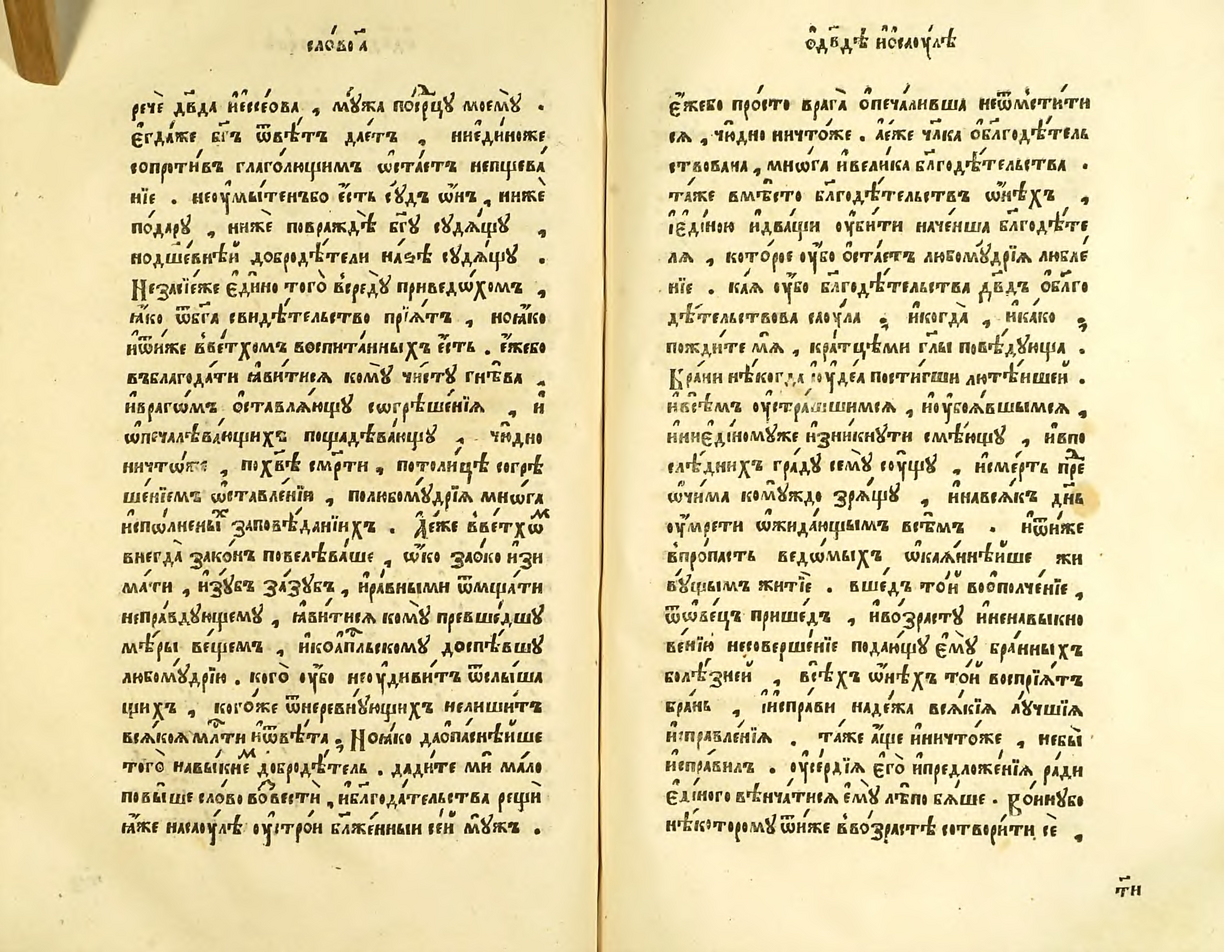 сло́во а҃
речѐ дв҃да і҆ессеѻва , мꙋ́жа посрⷣцꙋ моемꙋ̀ .
є҆гда́же бг҃ъ ѿвѣ́тъ дае́тъ , ниеди́ноже
сопроти́въ глаго́лющимъ ѡ҆стае́тъ непщева́
нїе . неоумы́тенъбо є҆́сть сꙋ́дъ ѡ҆́нъ , ни́же
пода́рꙋ , ни́же повраждѣ̀ бг҃ꙋ сꙋдѧ́щꙋ ,
нодш҃евнѣ́й добродѣ́тели на́съ сꙋдѧ́щꙋ .
Незасїе́же є҆ди́но того̀ всредꙋ̀ приведо́хомъ ,
ꙗ҆́ко ѿбг҃а свидѣ́тельство прїѧ́тъ , ноꙗ҆́ко
иѿни́же вве́тхомъ воспита́нныхъ є҆́сть . є҆́жебо
въблагода́ти ꙗ҆ви́тисѧ комꙋ̀ чи́стꙋ гнѣ́ва ,
ивраго́мъ ѡ҆ставлѧ́ющꙋ согрѣше́нїѧ , и҆
ѡ҆печалѣва́ющихъ пощадѣва́ющꙋ , чю́дно
ничто́же , похв҃ѣ сме́рти , потоли́цѣ согрѣ
ше́нїемъ ѡ҆ставле́нїи , полюбомꙋ́дрїѧ мнѡ́га
испо́лнены заповѣ́данїихъ . А҆е́же вве́тхоⷨ
внегда̀ зако́нъ повелѣва́ше , ѻ҆́ко заѻ҆́ко изи
ма́ти , изꙋ́бъ зазꙋ́бъ , ира́вными ѿмща́ти
непра́вдꙋющемꙋ , ꙗ҆ви́тисѧ комꙋ̀ преше́дшꙋ
мѣ́ры веще́мъ , икоа҆пⷭ҇льскомꙋ доспѣ́вшꙋ
любомꙋ́дрїю . кого̀ ᲂу҆́бо неᲂу҆диви́тъ ѿслы́ша
щихъ , кого́же ѿнеревнꙋ́ющихъ нелиши́тъ
всѧ́коѧ мл҃ти иѿвѣ́та . Ноꙗ҆́ко даѻ҆па́снѣйше
того̀ навы́кнеⷨ добродѣ́тель . дади́те мѝ ма́ло
повы́ше сло́во возвестѝ , иблагода́тельства рещѝ
ꙗ҆́же насаꙋ́лѣ ᲂу҆стро́и бл҃же́нныи се́й мꙋ́жъ .
ѻ҆дв҃дѣ иѻ҆саꙋ́лѣ
є҆́жебо про́сто врага̀ ѻ҆печа́лившa неѿмсти́ти
сѧ , чю́дно ничто́же . а҆е́же чл҃ка ѻ҆благодѣ́тель
ствована , мнѡ́га ивели́ка бл҃годѣ́тельства .
та́же вмѣ́сто бл҃годѣ́тельствъ ѡ҆нѣ́хъ ,
іє҆ди́ною идва́щи ᲂу҆би́ти наче́нша бл҃годѣ́те
лѧ , кото́рое ᲂу҆́бо ѻ҆стае́тъ любомꙋ́дрїѧ люблє́
нїе . ка́ѧ ᲂу҆́бо бл҃годѣ́тельства дв҃дъ ѻ҆бл҃го
дѣ́тельствова саꙋ́ла ; икогда̀ , ика́ко ;
пождѝте мѧ̀ , кратцѣ́ми гл҃ы повѣ́дꙋюща .
Бра́ни нѣ́когда иꙋде́а пости́гши лютѣ́ишей .
ивсѣ́мъ ᲂу҆страши́вшимсѧ , иᲂу҆боѧ́вшымсѧ ,
иниє҆ди́номꙋже изни́кнꙋти смѣ́ющꙋ , ивпо
слѣ́днихъ гра́дꙋ семꙋ̀ сꙋ́щꙋ , исме́рть преⷣ
ѻ҆чи́ма комꙋ́ждо зрѧ́щꙋ , инавсѧ́къ дн҃ь
ᲂу҆мре́ти ѡ҆жида́ющымъ всѣ́мъ . иѿни́же
впро́пасть ведо́мыхъ ѡ҆каѧ́ннѣйше жи
вꙋ́щымъ житїѐ . вше́дъ то́й воополче́нїе ,
ѿѻ҆ве́цъ прише́дъ , ивозрастꙋ̀ иненавыкно
ве́нїю несоверше́нїе подаю́щꙋ є҆мꙋ̀ бра́нныхъ
болѣ́зней , всѣ́хъ ѡ҆нѣ́хъ то́й воспрїѧ́тъ
бра́нь , иисправѝ наде́жа всѧ́кїѧ лꙋ́чшїѧ
исправле́нїѧ . та́же а҆́ще иничто́же , небы̀
испра́вилъ . ᲂу҆се́рдїѧ є҆гѡ̀ ипредложе́нїѧ ра́ди
є҆ди́ного вѣнча́тисѧ є҆мꙋ̀ лѣ́по бѧ́ше . Во́инꙋбо
нѣ́которомꙋ ѿни́же ввозрастѣ̀ сотвори́ти сѐ ,
т҃и